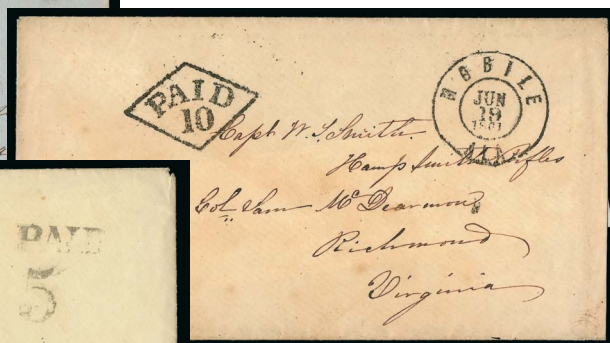 PAID
10
MOBILE
JUN
19
1861
ALA
Capt W. S. Smith.
Hamp Smith Rifles
Col. Sam McDearmon
Richmond
Virginia
PAID
5